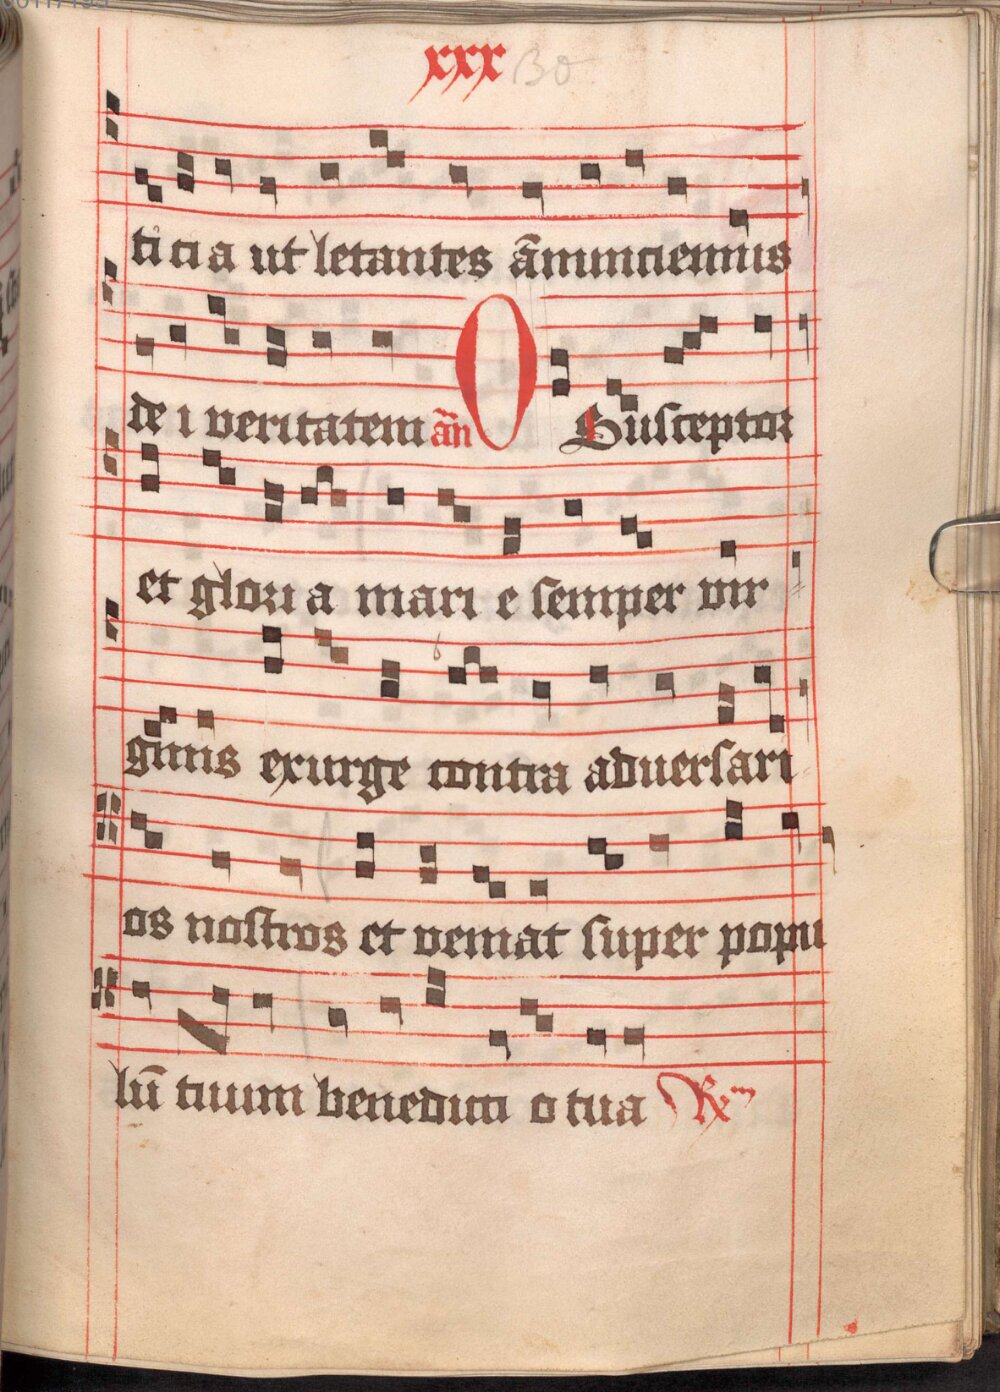 xxx 30
ti ti a ut letantes ān̄unctiemus
de i veritatem an̄ O Susceptor
et glori a mari e semper vir
ginis exurge contra adversari
os nostros et veniat super popu
lū tuum benedicti o tua